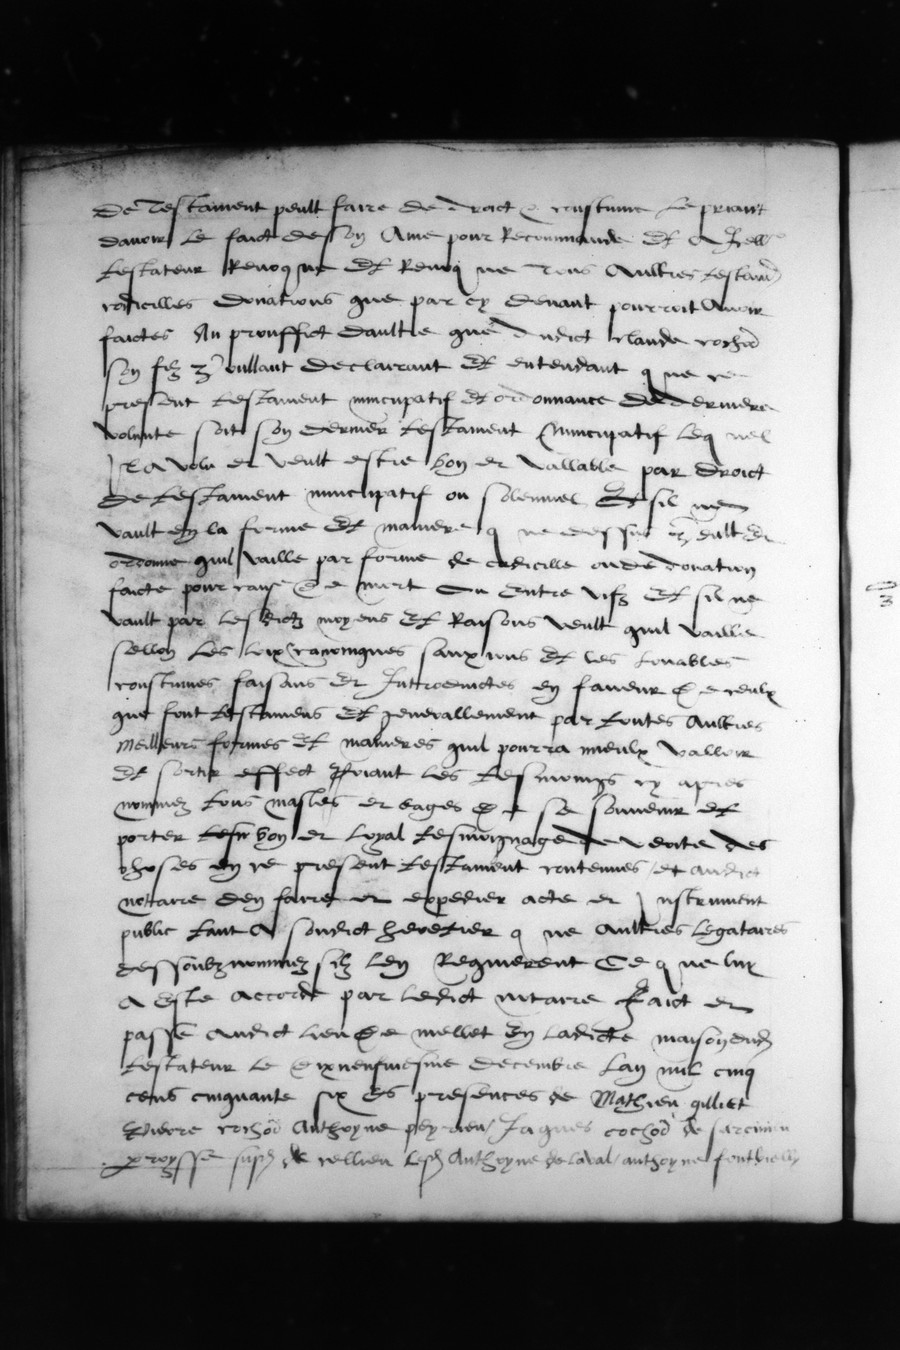 de testament peult faire de droict & coustume le priant
davoir le faict de son Ame pour Recommande Et a Icelluy
testateur Revocque Et Revocque tous Aultres testamens
codicilles donations que par cy devant pourroit Avoir
faictes Au prouffict daultre que dudict claude cochod
son filz voullant declairant Et entendant que ce
present testament nuncupatif et ordonnance de derniere
volunte soit son dernier testament Nuncupatif lequel
Il A volu et veult estre bon et vallable par droict
de testament nuncupatif ou solemnel Et sil ne
vault en la forme Et maniere que dessus veult Et
ordonne quil vaille par forme de codicille ou de donation
faicte pour cause de mort Ou Entre vifz Et sil ne
vault par lesdictz moyens Et Raisons veult quil vaille
sellon les loix canonicques sanxions Et les louables
coustumes faisans Et Introduictes en faveur de ceulx
que font testamens Et generallement par toutes Aultres
Meilleurs formes Et manieres quil pourra mieulx valloir
Et sortir effect Priant les tesmoings cy apres
nommez tous masles et eages de se souvenir Et
porter bon et loyal tesmoignage de verite des
choses en ce present testament contenues / et audict
notaire den faire et expedier acte et Instrument
public tant A sondict heretier que Aultres legataires
dessoubz nommez silz len Requierent Ce que luy
A Este Accorde par ledict notaire Faict et
passe Audict lieu de mellet En ladicte maison dud
testateur le dixneufviesme decembre lan mil cinq
cens cinquante six Es presences de Mathieu gilliet
Pierre cochod Anthoyne peyrieu / Jaques cochod de
paroysse susd de lesd Anthoyne de laval / anthoyne